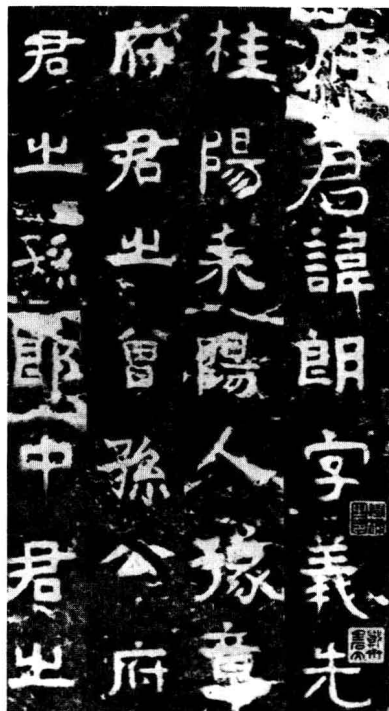 君諱朗字義先
桂陽耒陽人豫章
府君之曾孫公府
君之孫郎中君之